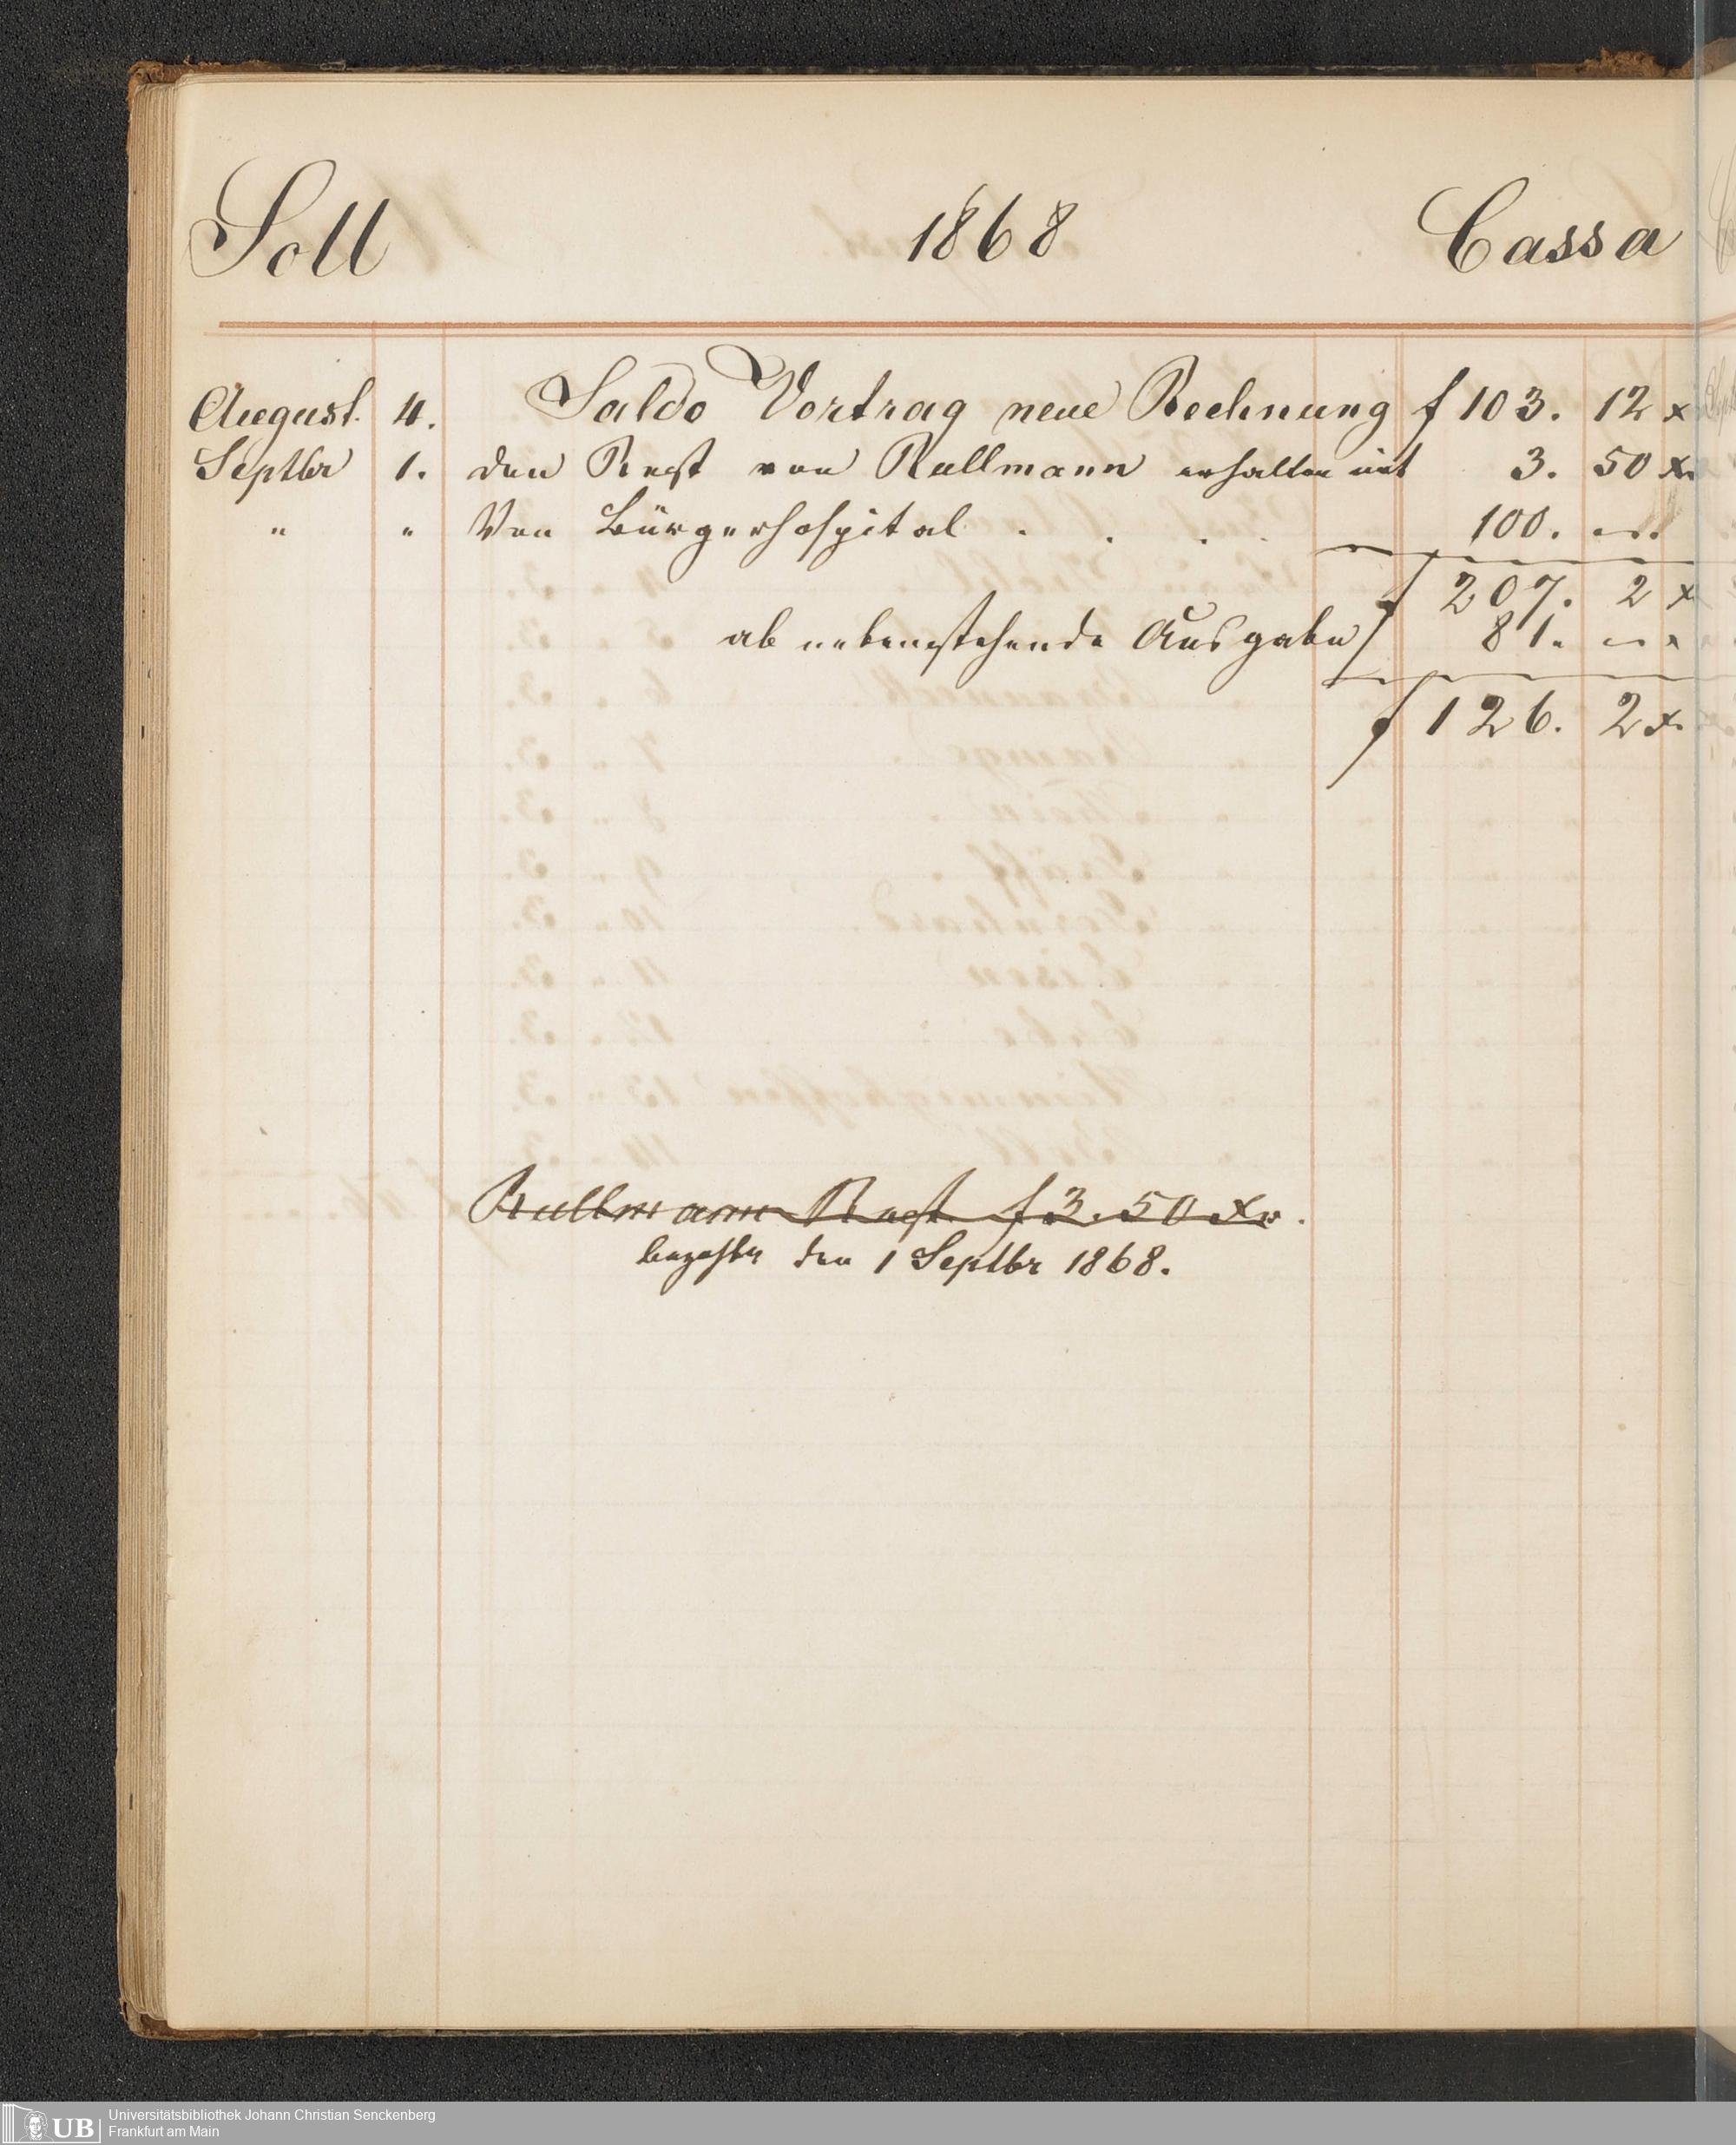 Soll 1868 Cassa
August. 4. Saldo Vortrag neue Rechnung f 103. 12 x
Septbr 1. den Rest von Rullmann erhalten mit 3. 50 xr
" " Von Bürgerhospital . . . . 100. —.
f 207. 2 x
ab nebenstehende Ausgabe f 81. — x
f 126. 2 x.
Rullmann Rest f 3. 50 xr.
bezahlt den 1 Septbr 1868.
UB Universitätsbibliothek Johann Christian Senckenberg
Frankfurt am Main